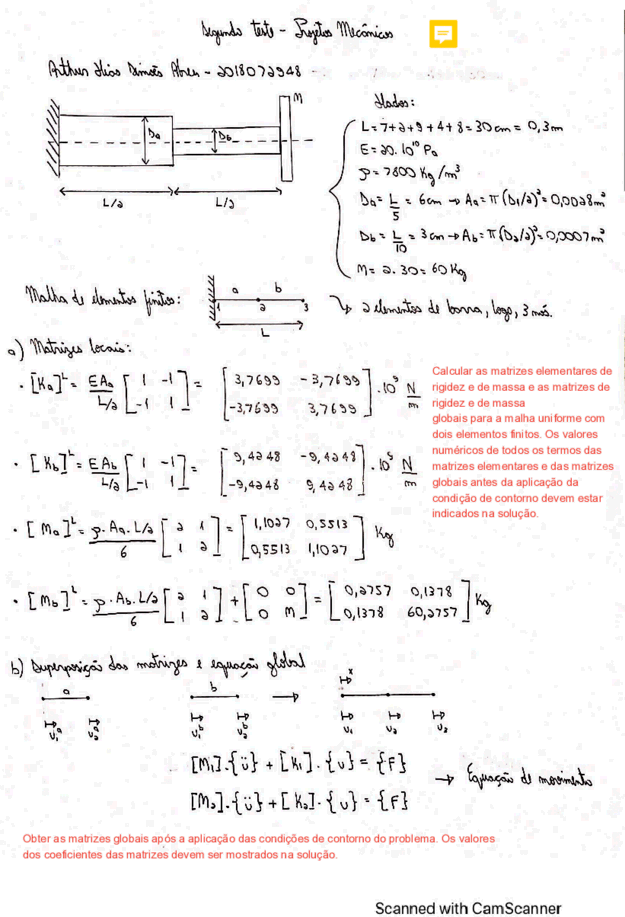 Segundo teste - Projetos Mecânicos
Arthur Simões Abreu - 2018072948
M
Da
Db
L/2 L/2
Dados:
L = 7+2+9+4+8 = 30 cm = 0,3m
E = 20.10¹⁰ Pa
ρ = 7800 Kg/m³
Da = L/5 = 6 cm → Aa = π(D1/2)² = 0,0028m²
Db = L/10 = 3 cm → Ab = π(D2/2)² = 0,0007m²
M = 2.30 = 60 Kg
Malha de elementos finitos:
a b
1 2 3
L
↳ 2 elementos de barra, logo, 3 nós.
a) Matrizes locais:
· [Ka]ᴸ = EAa/(L/2) [1 -1; -1 1] = [3,7699 -3,7699; -3,7699 3,7699] .10⁹ N/m
· [Kb]ᴸ = EAb/(L/2) [1 -1; -1 1] = [9,4248 -9,4248; -9,4248 9,4248] .10⁸ N/m
Calcular as matrizes elementares de
rigidez e de massa e as matrizes de
rigidez e de massa
globais para a malha uniforme com
dois elementos finitos. Os valores
numéricos de todos os termos das
matrizes elementares e das matrizes
globais antes da aplicação da
condição de contorno devem estar
indicados na solução.
· [Ma]ᴸ = ρ.Aa.L/2 / 6 [2 1; 1 2] = [1,1027 0,5513; 0,5513 1,1027] Kg
· [Mb]ᴸ = ρ.Ab.L/2 / 6 [2 1; 1 2] + [0 0; 0 M] = [0,2757 0,1378; 0,1378 60,2757] Kg
b) Superposição das matrizes e equação global
a b → x
u₁ᵃ u₂ᵃ u₁ᵇ u₂ᵇ u₁ u₂ u₂
[M₁].{ü} + [K₁].{u} = {F}
→ Equação de movimento
[M₂].{ü} + [K₂].{u} = {F}
Obter as matrizes globais após a aplicação das condições de contorno do problema. Os valores
dos coeficientes das matrizes devem ser mostrados na solução.
Scanned with CamScanner